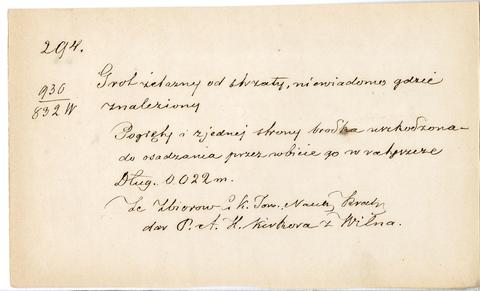 294.
930
832 W
Grot żelazny od strzały, niewiadomo gdzie
znaleziony
Pogięty i z jednej strony brodka uszkodzona
do osadzania przez wbicie go w
Dług. 0.022 m.
Ze Zbiorow C. k. Tow. Nauk. Krak.
dar P. A. H. Kirkora z Wilna.